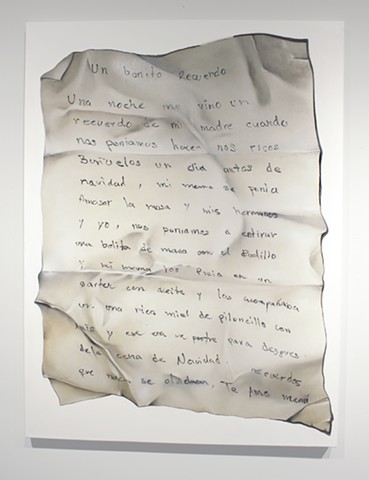 Un bonito Recuerdo
Una noche me vino un
recuerdo de mi madre cuando
nos poniamos hacer nos ricos
Buñuelos un dia antes de
navidad, mi mama se ponia
Amasar la masa y mis hermanos
y yo, nos poniamos a estirar
una bolita de masa con el Rodillo
Y mi mama los en un
sarten con aceite y los acompañaba
una rica miel de piloncillo con
y ese era postre para despues
dela cena de Navidad.
recuerdos
que nunca se olvidaran, Te Amo mamá